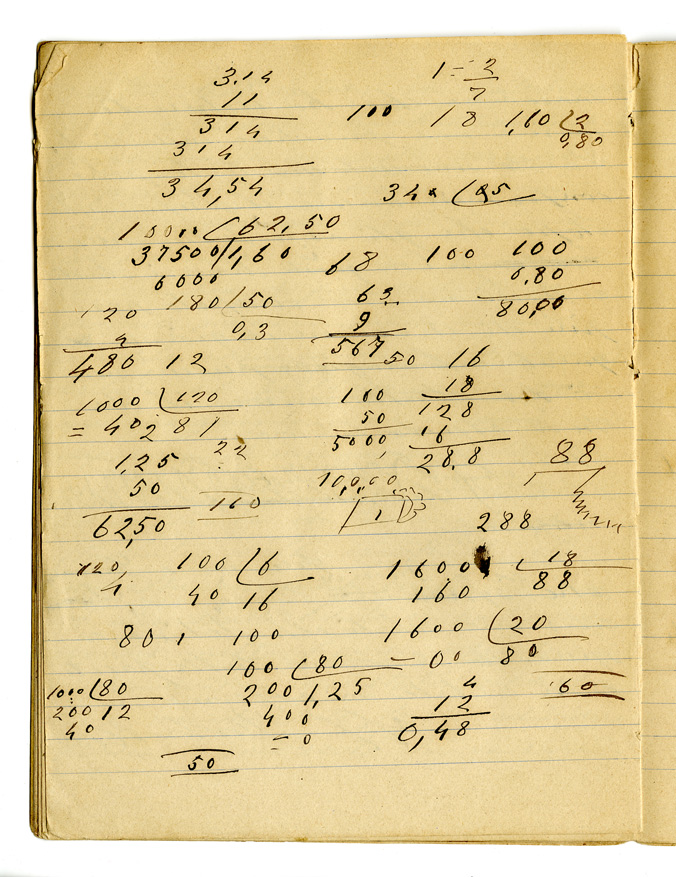 3.14 1 = 2
11 7
314 100 18 1,60 2
314 0,80
34,54 34 25
10000 62,50
37500 1,60 68 100 100
6000 0,80
180 50 63 80,00
120 0,3 9
4 567
480 12 50 16
1000 120 100 18
= 40281 50 128
1,25 22 5000, 16
50 28,8 88
6250 160 10,000
1
288
120 100 6 1600 18
4 40 16 160 88
80 1 100 1600 20
100 80 = 00 80
1000 80 200 1,25 4 60
200 12 400 12
40 = 0 0,48
50